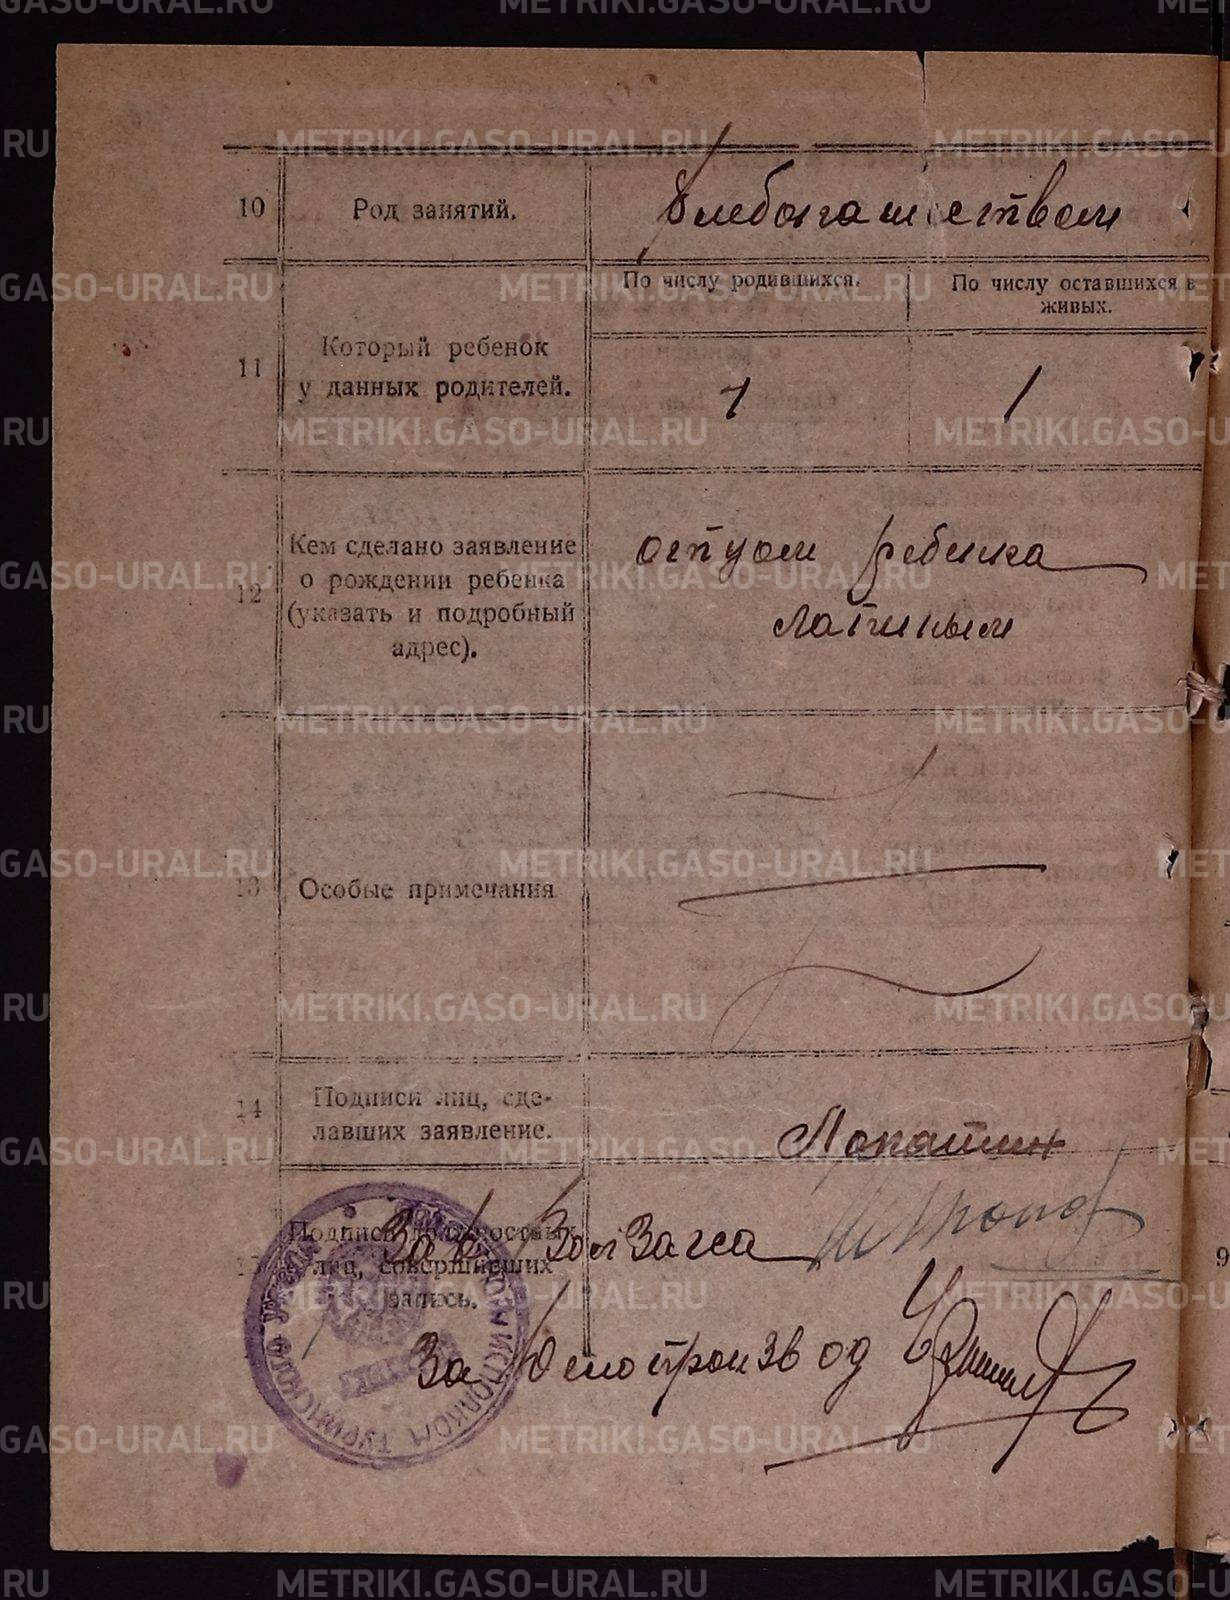 METRIKI.GASO-URAL.RU
10 Род занятий. Хлебопашеством
11 Который ребенок у данных родителей.
По числу родившихся. По числу оставшихся в живых.
1 1
12 Кем сделано заявление
о рождении ребенка
(указать и подробный
адрес).
отцом ребенка
13 Особые примечания
14 Подписи лиц, сде-
лавших заявление.
Лопатин
Подписи должностных
лиц, совершивших
запись.
Зав. Загса
За Делопроизвод
ИСПОЛКОМ ТУРИНСКОГО